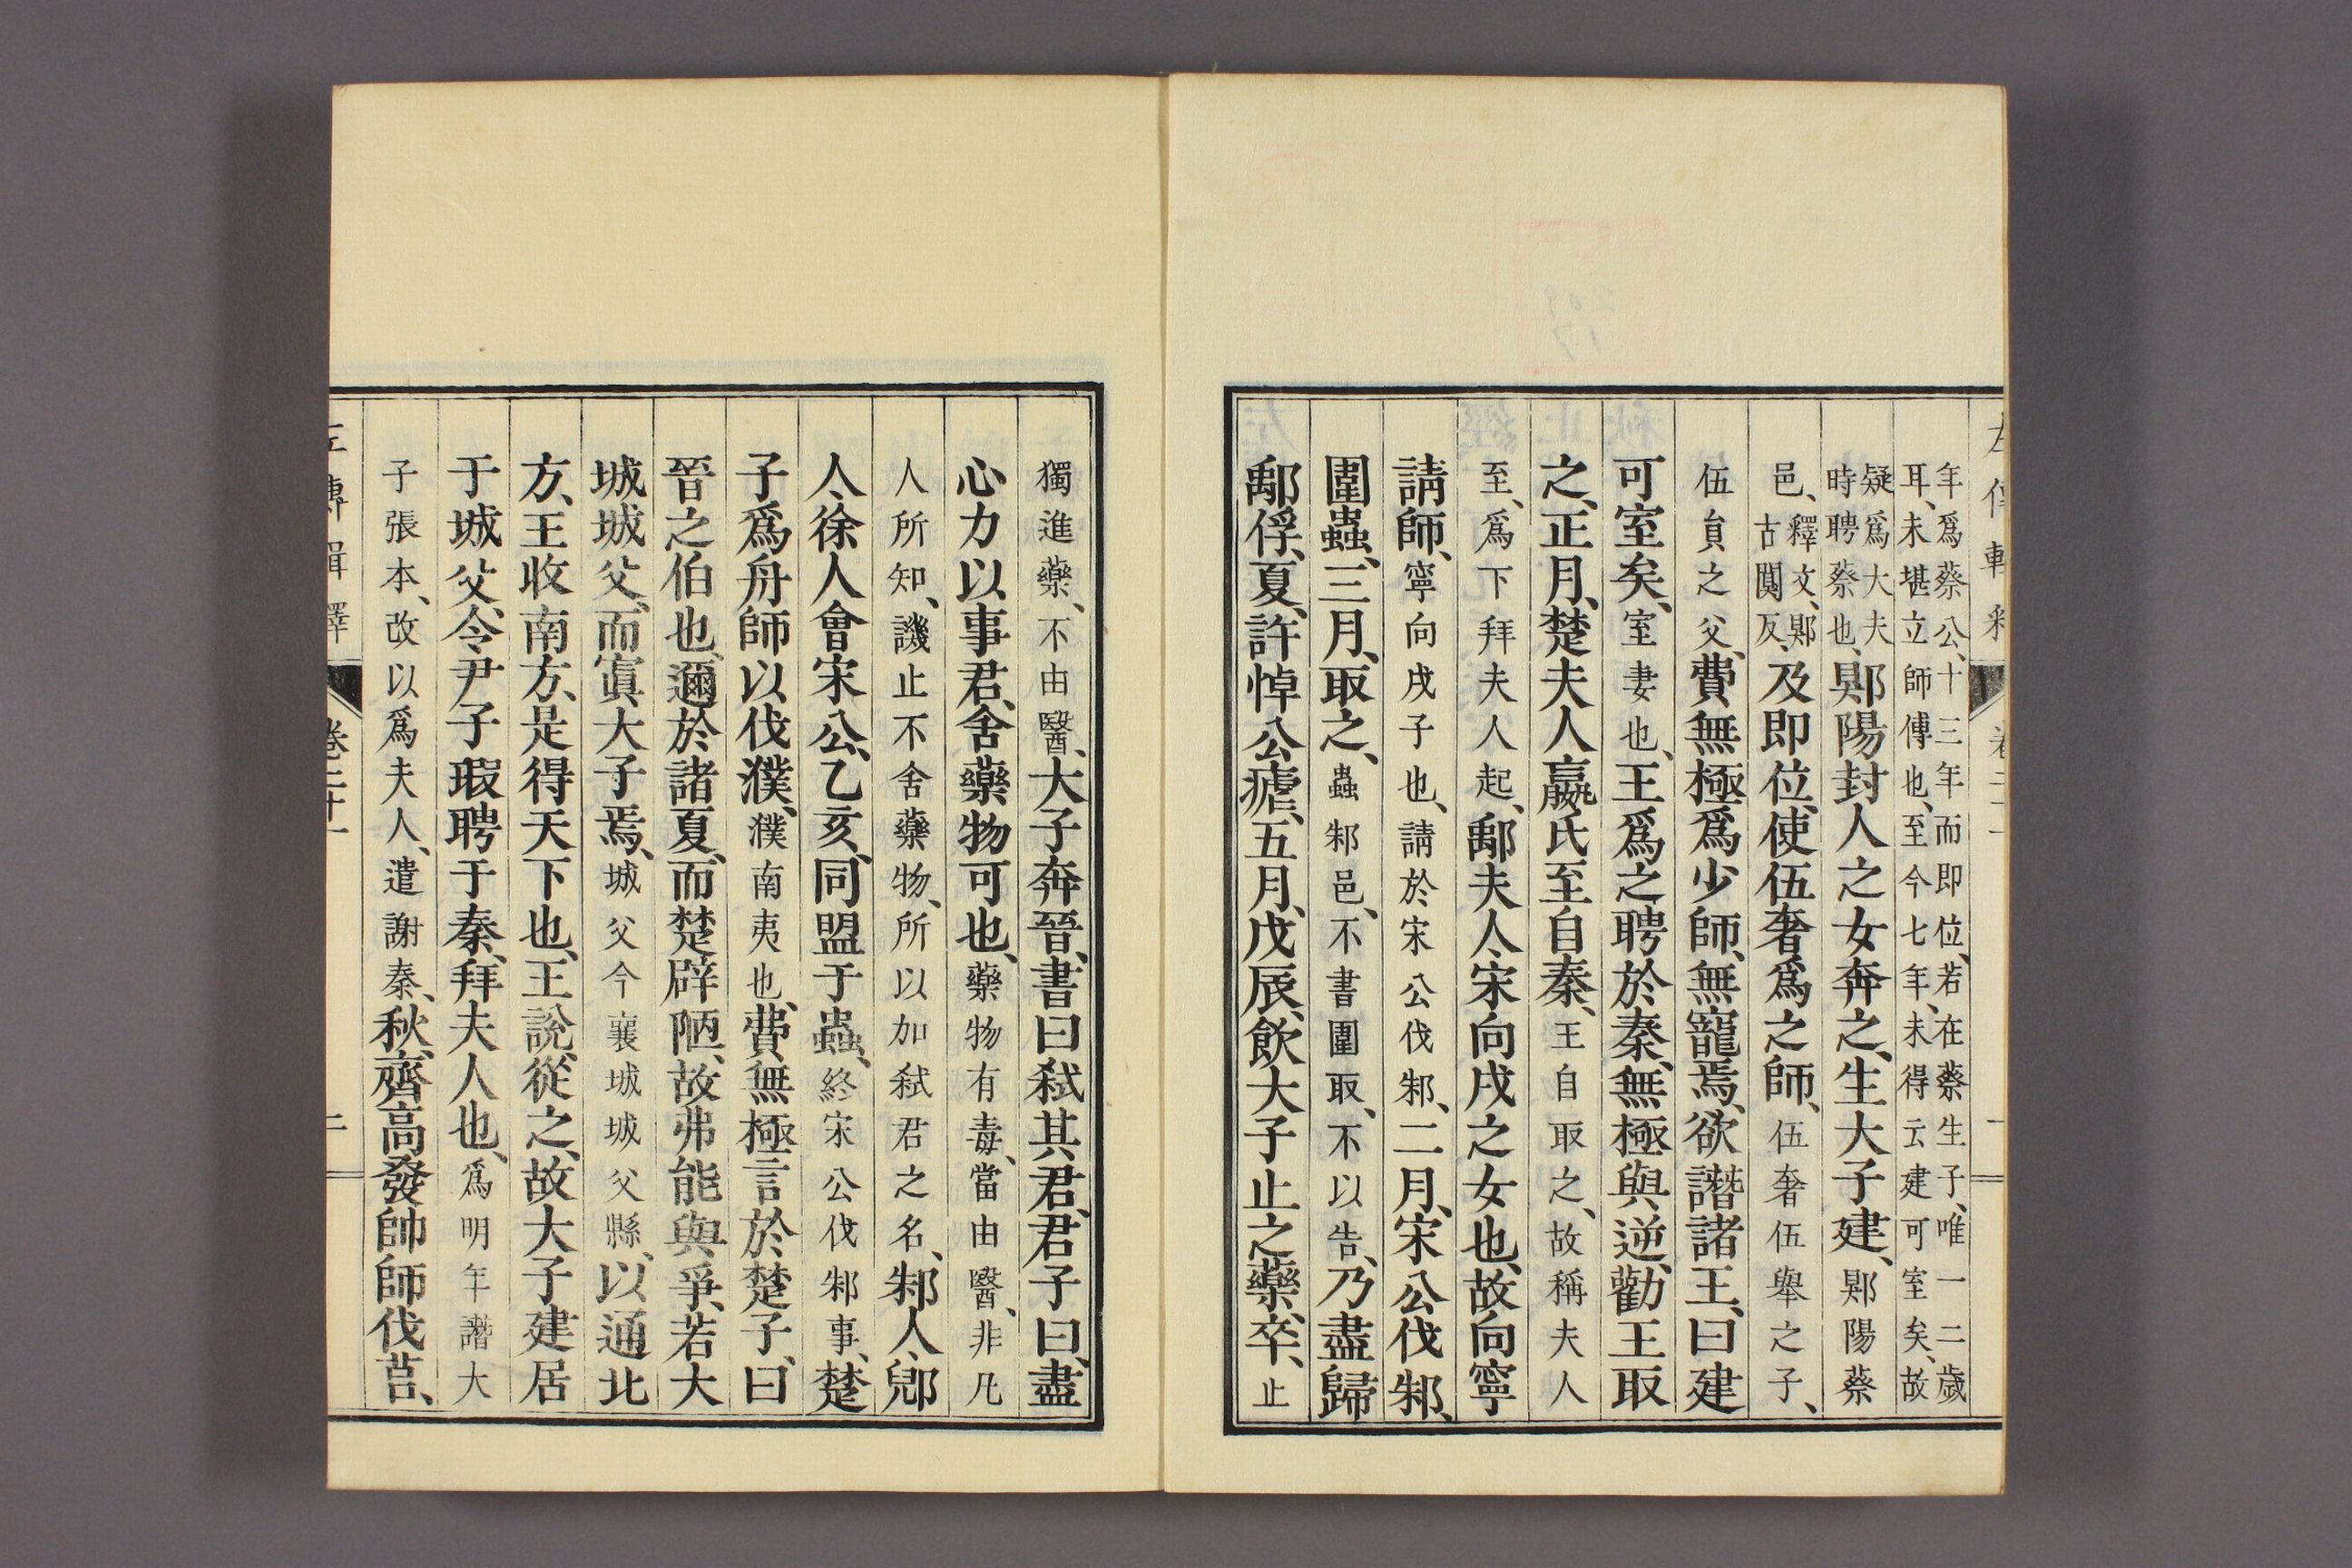 左傳輯釋 卷二十一 一
年爲蔡公、十三年而即位、若在蔡生子、唯一二歲
耳、未堪立師傅也、至今七年、未得云建可室矣、故
疑爲大夫
時聘蔡也、郹陽封人之女奔之、生大子建、郹陽蔡
邑、釋文、郹
古闃反、及即位、使伍奢爲之師、伍奢伍舉之子、
伍員之父、費無極爲少師、無寵焉、欲譖諸王、曰建
可室矣、室妻也、王爲之聘於秦、無極與逆、勸王取
之、正月、楚夫人嬴氏至自秦、王自取之、故稱夫人
至、爲下拜夫人起、鄅夫人、宋向戌之女也、故向寧
請師、寧向戌子也、請於宋公伐邾、二月、宋公伐邾、
圍蟲、三月、取之、蟲邾邑、不書圍取、不以告、乃盡歸
鄅俘、夏、許悼公瘧、五月、戊辰、飲大子止之藥、卒、止
獨進藥、不由醫、大子奔晉、書曰弒其君、君子曰、盡
心力以事君、舍藥物可也、藥物有毒、當由醫、非凡
人所知、譏止不舍藥物、所以加弒君之名、邾人、郳
人、徐人會宋公、乙亥、同盟于蟲、終宋公伐邾事、楚
子爲舟師以伐濮、濮南夷也、費無極言於楚子、曰
晉之伯也、邇於諸夏、而楚辟陋、故弗能與爭、若大
城城父、而寘大子焉、城父今襄城城父縣、以通北
方、王收南方、是得天下也、王說、從之、故大子建居
于城父、令尹子瑕聘于秦、拜夫人也、爲明年譖大
子張本、改以爲夫人、遣謝秦、秋、齊高發帥師伐莒、
左傳輯釋 卷二十一 二